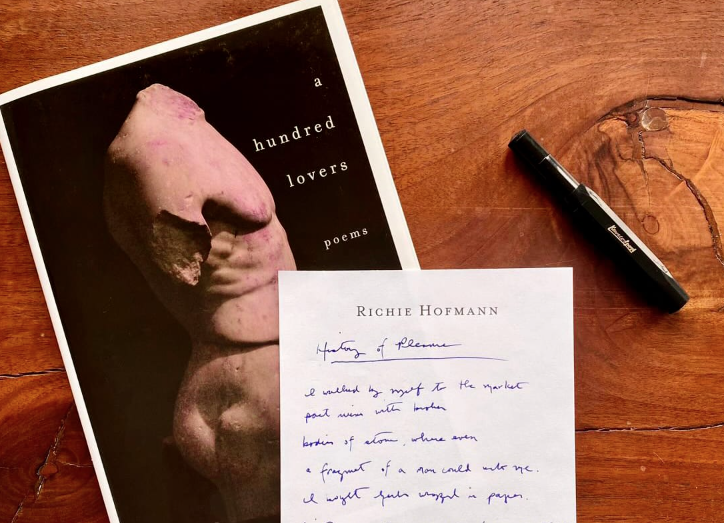 a
hundred
lovers
poems
RICHIE HOFMANN
History of Pleasure
I walked by myself to the market
past ruins with broken
bodies of stone, where even
a fragment of a man could undo me.
I bought garlic wrapped in paper.
Kaweco